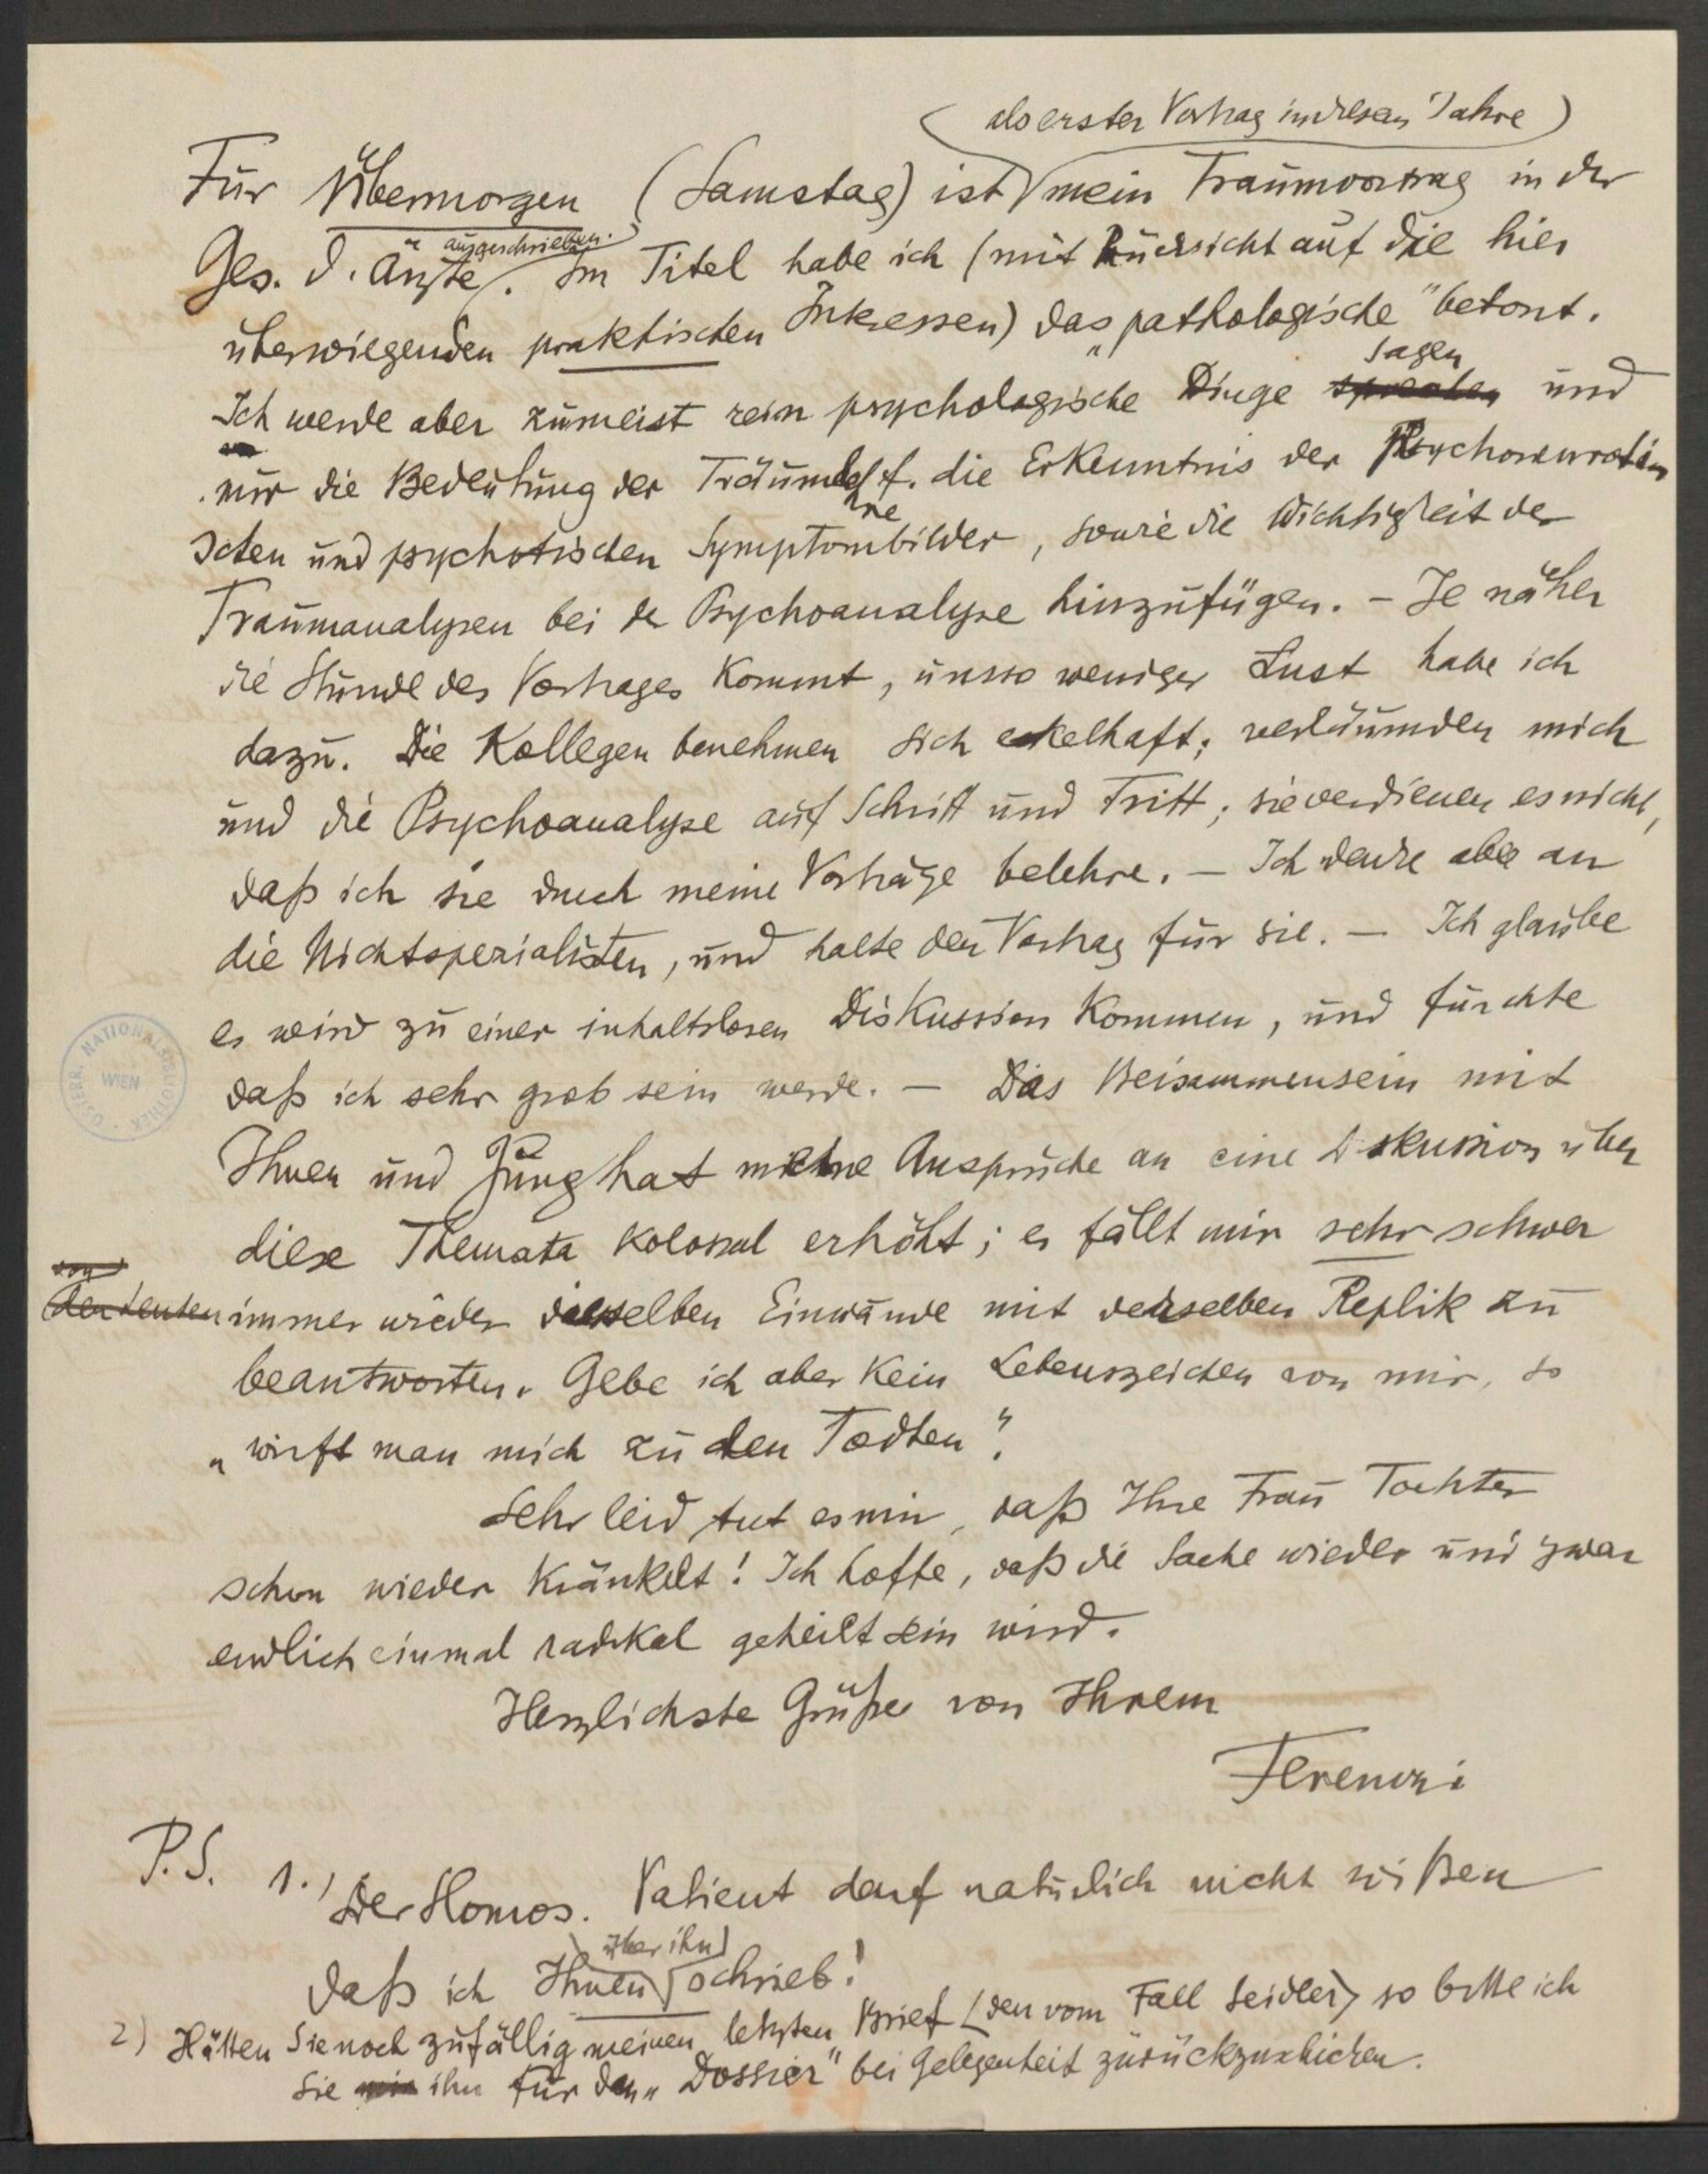 (als erster Vortrag in diesem Jahre)
Für Übermorgen (Samstag) ist mein Traumvortrag in der
ausgeschrieben.
Ges. d. Ärzte. Im Titel habe ich (mit Rücksicht auf die hier
überwiegenden praktischen Interessen) das „pathologische" betont.
sagen
Ich werde aber zumeist rein psychologische Dinge sprechen und
nur die Bedeutung der Träume f. die Erkenntnis der Psychoneuroti-
schen und psychotischen Symptombilder, sowie die Wichtigkeit der
Traumanalysen bei der Psychoanalyse hinzufügen. – Je näher
die Stunde des Vortrages kommt, umso weniger Lust habe ich
dazu. Die Kollegen benehmen sich ekelhaft; verläumden mich
und die Psychoanalyse auf Schritt und Tritt; sie verdienen es nicht,
daß ich sie durch meine Vorträge belehre. – Ich denke aber an
die Nichtspezialisten, und halte den Vortrag für sie. – Ich glaube
es wird zu einer inhaltslosen Diskussion kommen, und fürchte
daß ich sehr grob sein werde. – Das Beisammensein mit
ÖSTERR. NATIONALBIBLIOTHEK WIEN
Ihnen und Jung hat meine Ansprüche an eine Diskussion über
diese Themata kolossal erhöht; es fällt mir sehr schwer
von
den Leuten immer wieder dieselben Einwände mit derselben Replik zu
beantworten. Gebe ich aber kein Lebenszeichen von mir, so
„wirft man mich zu den Todten".
Sehr leid tut es mir, daß Ihre Frau Tochter
schon wieder kränkelt! Ich hoffe, daß die Sache wieder und zwar
endlich einmal radikal geheilt sein wird.
Herzlichste Grüße von Ihrem
Ferenczi
P.S. 1.) Der Homos. Patient darf natürlich nicht wißen
über ihn
daß ich Ihnen schrieb!
2) Hätten Sie noch zufällig meinen letzten Brief (den vom Fall Seidler) so bitte ich
Sie mir ihn für den „Dossier" bei Gelegenheit zurückzuschicken.